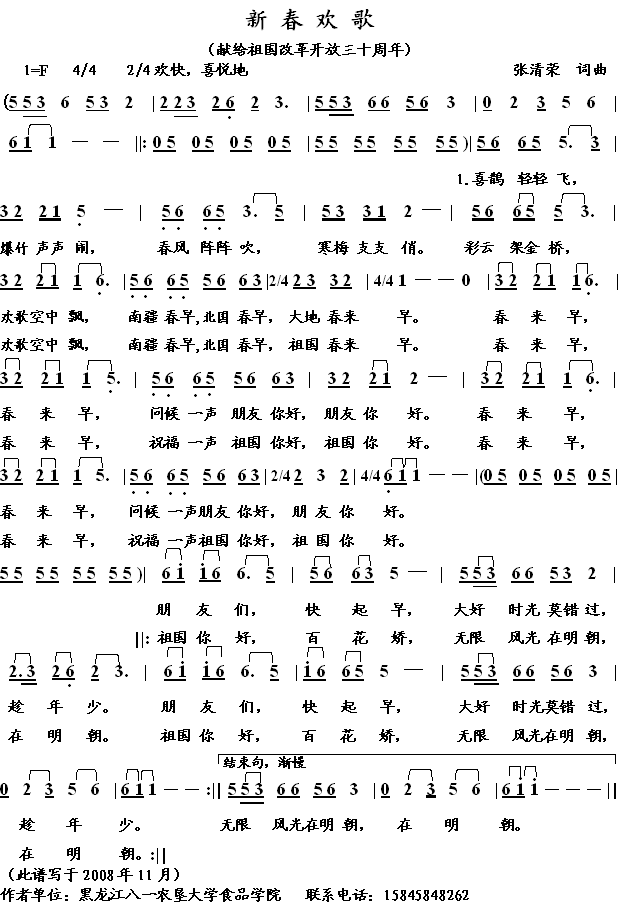 新春欢歌
（献给祖国改革开放三十周年）
1=F 4/4 2/4 欢快，喜悦地 张清荣 词曲
(5 5 3 6 5 3 2 | 2 2 3 2 6 2 3. | 5 5 3 6 6 5 6 3 | 0 2 3 5 6 |
6 1 1 — — ||: 0 5 0 5 0 5 0 5 | 5 5 5 5 5 5 5 5 )| 5 6 6 5 5. 3 |
1.喜鹊 轻轻 飞，
3 2 2 1 5 — | 5 6 6 5 3. 5 | 5 3 3 1 2 — | 5 6 6 5 5 3. |
爆竹 声声 闹， 春风 阵阵 吹， 寒梅 支支 俏。 彩云 架金 桥，
3 2 2 1 1 6. | 5 6 6 5 5 6 6 3 | 2/4 2 3 3 2 | 4/4 1 — — 0 | 3 2 2 1 1 6. |
欢歌空中 飘， 南疆 春早,北国 春早， 大地 春来 早。 春 来 早，
欢歌空中 飘， 南疆 春早,北国 春早， 祖国 春来 早。 春 来 早，
3 2 2 1 1 5. | 5 6 6 5 5 6 6 3 | 3 2 2 1 2 — | 3 2 2 1 1 6. |
春 来 早， 问候 一声 朋友 你好， 朋友 你 好。 春 来 早，
春 来 早， 祝福 一声 祖国 你好， 祖国 你 好。 春 来 早，
3 2 2 1 1 5. | 5 6 6 5 5 6 6 3 | 2/4 2 3 2 | 4/4 6 1 1 — — |(0 5 0 5 0 5 0 5 |
春 来 早， 问候 一声朋友 你好， 朋 友 你 好。
春 来 早， 祝福 一声祖国 你好， 祖 国 你 好。
5 5 5 5 5 5 5 5 )| 6 i i 6 6. 5 | 5 6 6 3 5 — | 5 5 3 6 6 5 3 2 |
朋 友 们， 快 起 早， 大好 时光 莫错 过，
||: 祖国 你 好， 百 花 娇， 无限 风光 在明 朝，
2. 3 2 6 2 3. | 6 i i 6 6. 5 | i 6 6 5 5 — | 5 5 3 6 6 5 6 3 |
趁 年 少。 朋 友 们， 快 起 早， 大好 时光莫错 过，
在 明 朝。 祖国 你 好， 百 花 娇， 无限 风光在明 朝，
结束句，渐慢
0 2 3 5 6 | 6 1 1 — — :|| 5 5 3 6 6 5 6 3 | 0 2 3 5 6 | 6 i i — — — ||
趁 年 少。 无限 风光在明 朝， 在 明 朝。
在 明 朝。:||
（此谱写于 2008 年 11 月）
作者单位：黑龙江八一农垦大学食品学院 联系电话：15845848262